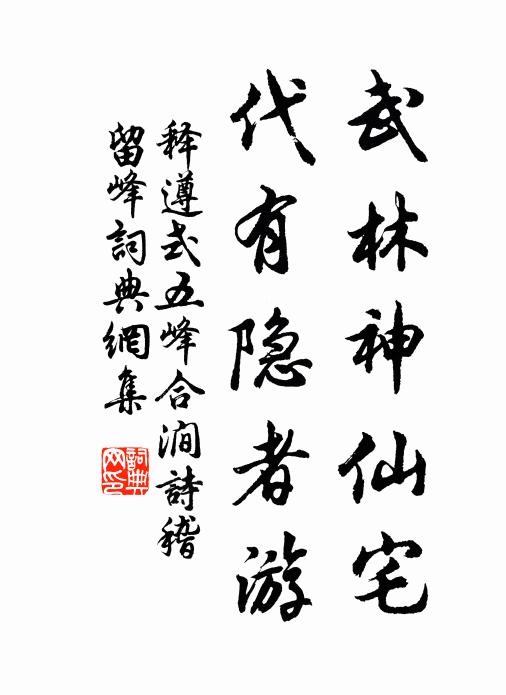 武林神仙宅
代有隐者游
释遵式五峰合涧詩稽
留峰詞典網集
詞典网印